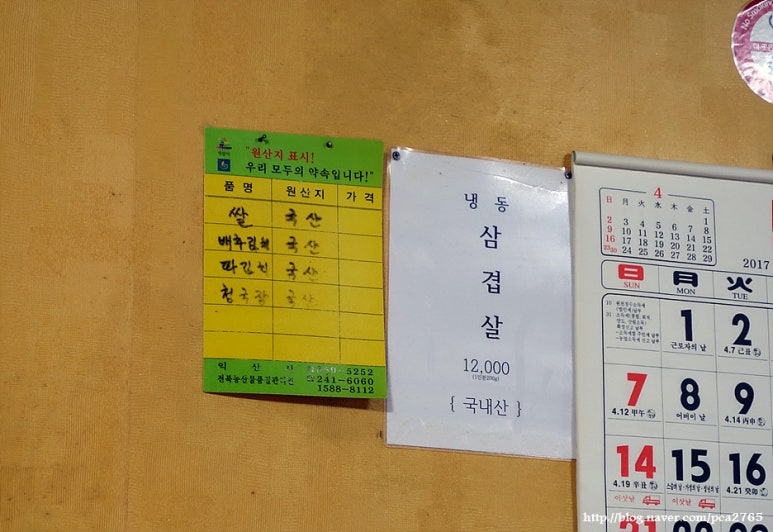 "원산지 표시!
우리 모두의 약속입니다!"
품 명 원산지 가 격
쌀 국산
배추김치 국산
파김치 국산
청국장 국산
익 산 시
5252
전북농산물품질관리원 ☎241-6060
1588-8112
냉 동
삼
겹
살
12,000
(1인분200g)
{ 국내산 }
No Smoking
4
日 月 火 水 木 金 土
1
2 3 4 5 6 7 8
9 10 11 12 13 14 15
16 17 18 19 20 21 22
23/30 24 25 26 27 28 29
2017
日 月 火
SUN MON TUE
1 2
근로자의 날 4.7 己丑
7 8 9
4.12 甲午 어버이 날 4.14 丙申
14 15 16
4.19 辛丑 스승의 날·가정의 날·성년의 날 4.21 癸卯
이삿날 이삿날
21 22 23
http://blog.naver.com/pca2765